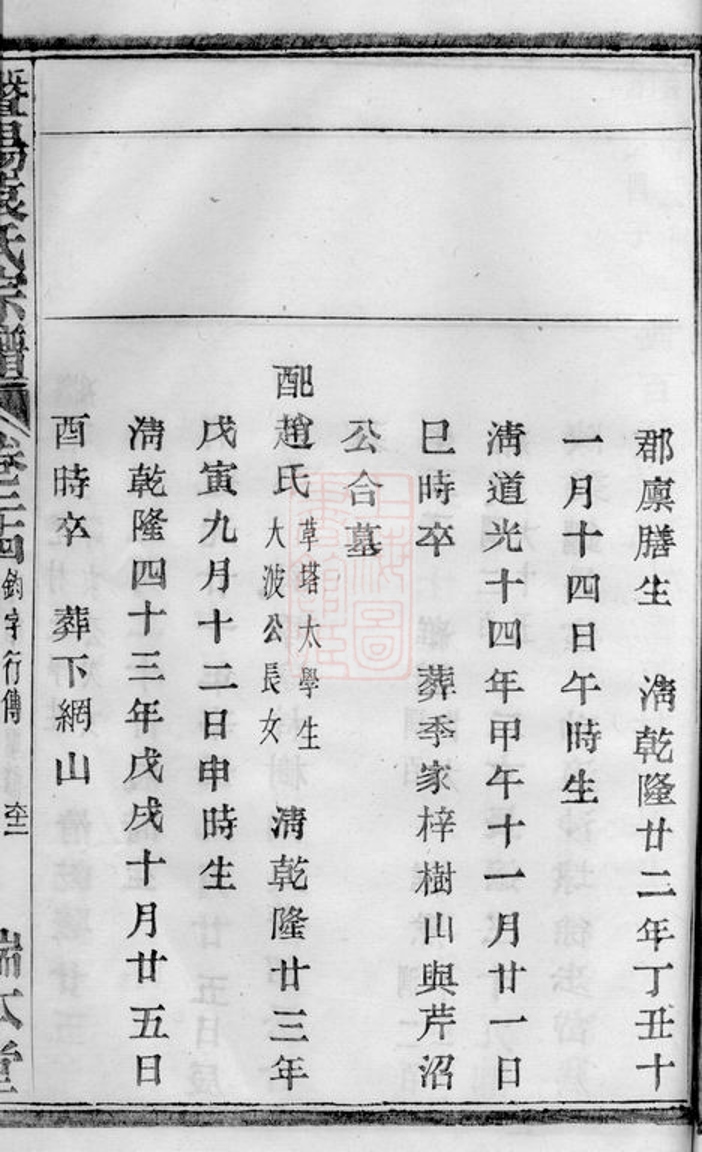 郡廪膳生　淸乾隆廿二年丁丑十
一月十四日午時生
淸道光十四年甲午十一月廿一日
巳時卒　葬季家梓樹山與芹沼
公合墓
配趙氏草塔太學生
大波公長女　淸乾隆廿三年
戊寅九月十二日申時生
淸乾隆四十三年戊戌十月廿五日
酉時卒　葬下網山
暨陽袁氏宗譜
卷三十四
鈞字行傳